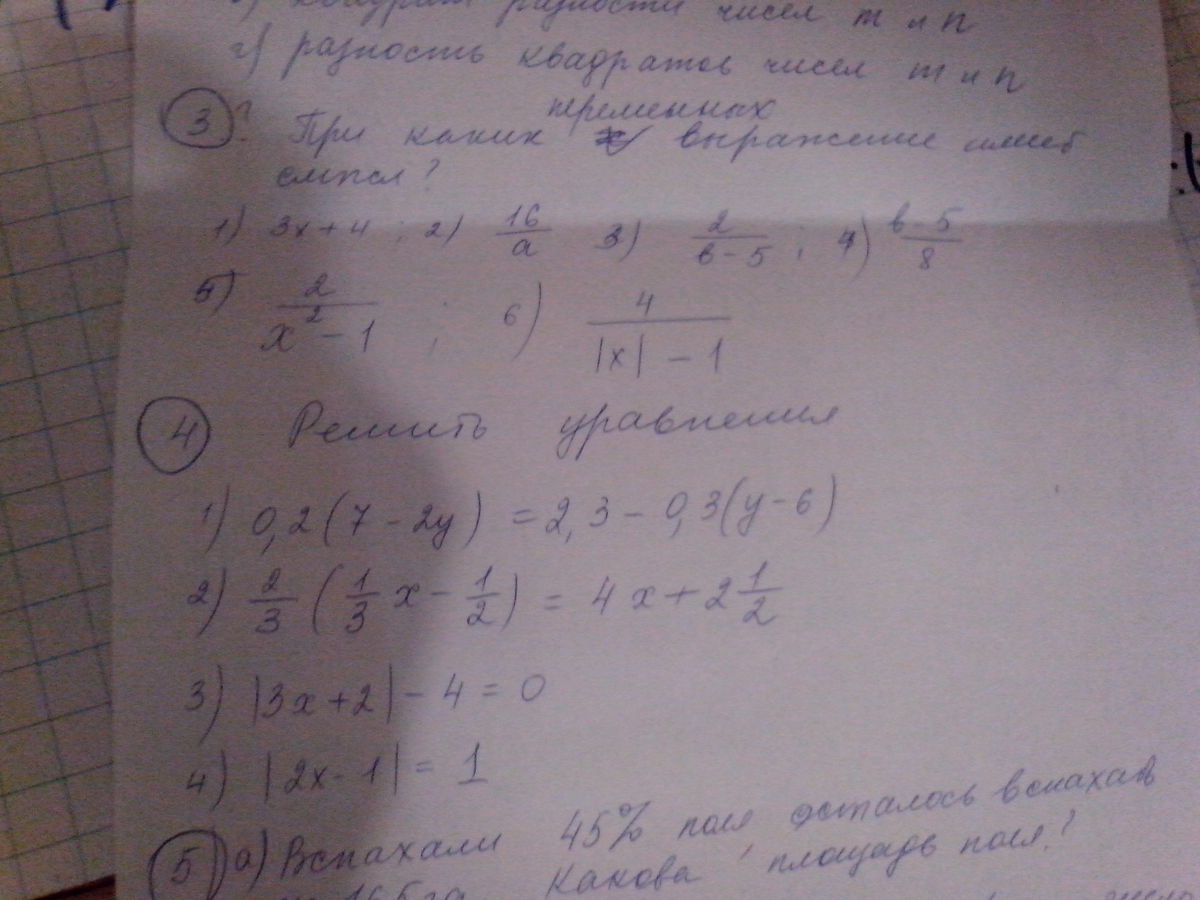 квадрат разности чисел m и n
г) разность квадратов чисел m и n
переменных
③? При каких выражение имеет
смысл?
1) 3x+4 ; 2) 16/a 3) 2/(в-5) ; 4) (в-5)/8
5) 2/(x²-1) ; 6) 4/(|x|-1)
④ Решить уравнения
1) 0,2(7-2y) = 2,3-0,3(y-6)
2) 2/3 (1/3 x - 1/2) = 4x + 2 1/2
3) |3x+2| - 4 = 0
4) |2x-1| = 1
⑤ а) Вспахали 45% поля, осталось вспахать
Какова площадь поля?